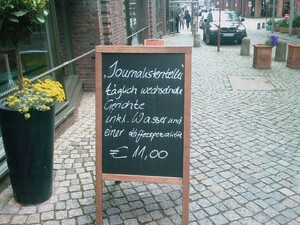 „Journalistenteller“
täglich wechselnde
Gerichte
inkl. Wasser und
einer Kaffeespezialität
€ 11,00